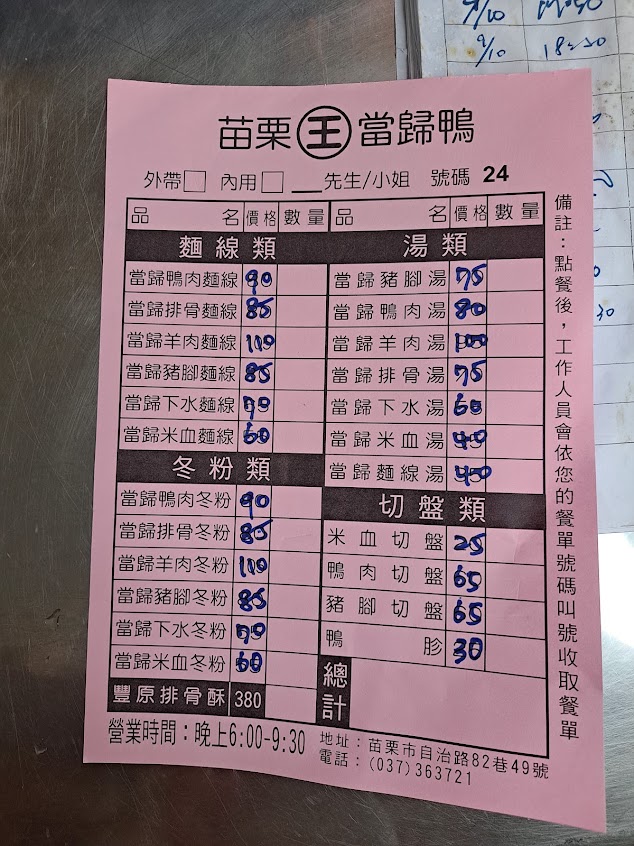 9/10 18:30
苗栗 王 當歸鴨
外帶□ 內用□ ___先生/小姐 號碼 24
品名 價格 數量 品名 價格 數量
麵線類
當歸鴨肉麵線 90
當歸排骨麵線 85
當歸羊肉麵線 110
當歸豬腳麵線 85
當歸下水麵線 70
當歸米血麵線 60
冬粉類
當歸鴨肉冬粉 90
當歸排骨冬粉 85
當歸羊肉冬粉 110
當歸豬腳冬粉 85
當歸下水冬粉 70
當歸米血冬粉 60
豐原排骨酥 380
湯類
當歸豬腳湯 75
當歸鴨肉湯 80
當歸羊肉湯 100
當歸排骨湯 75
當歸下水湯 60
當歸米血湯 40
當歸麵線湯 40
切盤類
米血切盤 25
鴨肉切盤 65
豬腳切盤 65
鴨胗 30
總計
備註：點餐後，工作人員會依您的餐單號碼叫號收取餐單
營業時間：晚上6:00-9:30
地址：苗栗市自治路82巷49號
電話：(037)363721